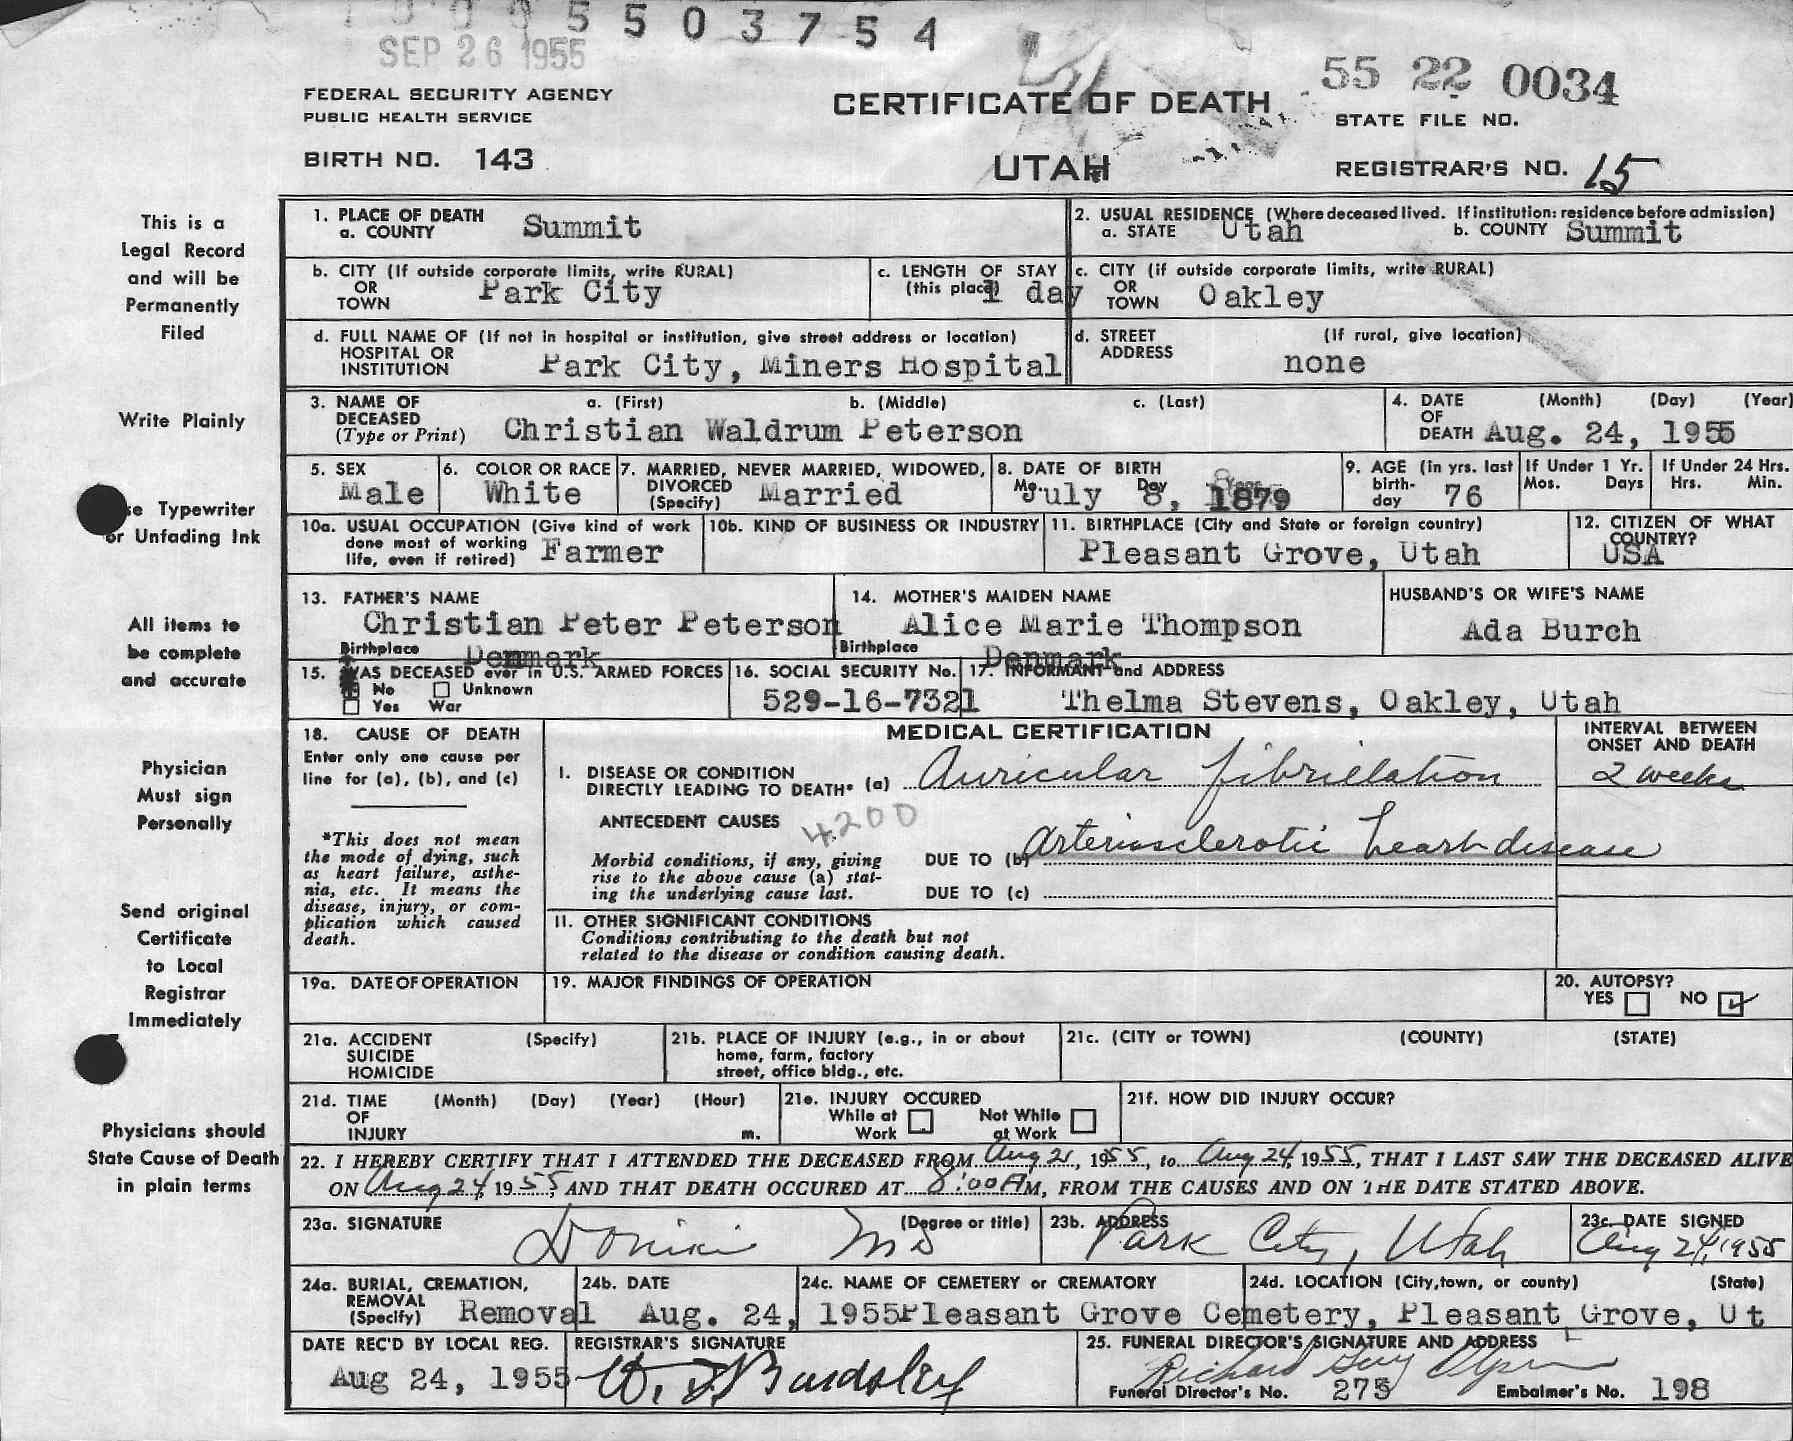 5503754
SEP 26 1955
55 22 0034
FEDERAL SECURITY AGENCY
PUBLIC HEALTH SERVICE
CERTIFICATE OF DEATH
STATE FILE NO.
BIRTH NO. 143
UTAH
REGISTRAR'S NO. 15
This is a
Legal Record
and will be
Permanently
Filed
Write Plainly
Typewriter
or Unfading Ink
All items to
be complete
and accurate
Physician
Must sign
Personally
Send original
Certificate
to Local
Registrar
Immediately
Physicians should
State Cause of Death
in plain terms
1. PLACE OF DEATH
a. COUNTY Summit
2. USUAL RESIDENCE (Where deceased lived. If institution: residence before admission)
a. STATE Utah b. COUNTY Summit
b. CITY (If outside corporate limits, write RURAL)
OR
TOWN Park City
c. LENGTH OF STAY
(this place) 1 day
c. CITY (if outside corporate limits, write RURAL)
OR
TOWN Oakley
d. FULL NAME OF (If not in hospital or institution, give street address or location)
HOSPITAL OR
INSTITUTION Park City, Miners Hospital
d. STREET (If rural, give location)
ADDRESS none
3. NAME OF a. (First) b. (Middle) c. (Last)
DECEASED
(Type or Print) Christian Waldrum Peterson
4. DATE (Month) (Day) (Year)
OF
DEATH Aug. 24, 1955
5. SEX
Male
6. COLOR OR RACE
White
7. MARRIED, NEVER MARRIED, WIDOWED,
DIVORCED
(Specify) Married
8. DATE OF BIRTH
Mo. Day Year
July 8, 1879
9. AGE (in yrs. last
birth-
day 76
If Under 1 Yr.
Mos. Days
If Under 24 Hrs.
Hrs. Min.
10a. USUAL OCCUPATION (Give kind of work
done most of working
life, even if retired) Farmer
10b. KIND OF BUSINESS OR INDUSTRY
11. BIRTHPLACE (City and State or foreign country)
Pleasant Grove, Utah
12. CITIZEN OF WHAT
COUNTRY?
USA
13. FATHER'S NAME
Christian Peter Peterson
Birthplace Denmark
14. MOTHER'S MAIDEN NAME
Alice Marie Thompson
Birthplace Denmark
HUSBAND'S OR WIFE'S NAME
Ada Burch
15. WAS DECEASED ever in U.S. ARMED FORCES
No Unknown
Yes War
16. SOCIAL SECURITY No.
529-16-7321
17. INFORMANT and ADDRESS
Thelma Stevens, Oakley, Utah
18. CAUSE OF DEATH
Enter only one cause per
line for (a), (b), and (c)
*This does not mean
the mode of dying, such
as heart failure, asthe-
nia, etc. It means the
disease, injury, or com-
plication which caused
death.
MEDICAL CERTIFICATION
INTERVAL BETWEEN
ONSET AND DEATH
I. DISEASE OR CONDITION
DIRECTLY LEADING TO DEATH* (a) Auricular fibrillation 2 weeks
ANTECEDENT CAUSES 4200
Morbid conditions, if any, giving
rise to the above cause (a) stat-
ing the underlying cause last.
DUE TO (b) Arteriosclerotic heart disease
DUE TO (c)
II. OTHER SIGNIFICANT CONDITIONS
Conditions contributing to the death but not
related to the disease or condition causing death.
19a. DATE OF OPERATION
19. MAJOR FINDINGS OF OPERATION
20. AUTOPSY?
YES NO
21a. ACCIDENT (Specify)
SUICIDE
HOMICIDE
21b. PLACE OF INJURY (e.g., in or about
home, farm, factory
street, office bldg., etc.
21c. (CITY or TOWN) (COUNTY) (STATE)
21d. TIME (Month) (Day) (Year) (Hour)
OF
INJURY m.
21e. INJURY OCCURED
While at Not While
Work at Work
21f. HOW DID INJURY OCCUR?
22. I HEREBY CERTIFY THAT I ATTENDED THE DECEASED FROM Aug 21, 1955, to Aug 24, 1955, THAT I LAST SAW THE DECEASED ALIVE
ON Aug 24, 1955, AND THAT DEATH OCCURED AT 8:00 AM, FROM THE CAUSES AND ON THE DATE STATED ABOVE.
23a. SIGNATURE (Degree or title)
MD
23b. ADDRESS
Park City, Utah
23c. DATE SIGNED
Aug 24, 1955
24a. BURIAL, CREMATION,
REMOVAL
(Specify) Removal
24b. DATE
Aug. 24, 1955
24c. NAME OF CEMETERY or CREMATORY
Pleasant Grove Cemetery,
24d. LOCATION (City, town, or county) (State)
Pleasant Grove, Ut
DATE REC'D BY LOCAL REG.
Aug 24, 1955
REGISTRAR'S SIGNATURE
25. FUNERAL DIRECTOR'S SIGNATURE AND ADDRESS
Richard Guy
Funeral Director's No. 275 Embalmer's No. 198